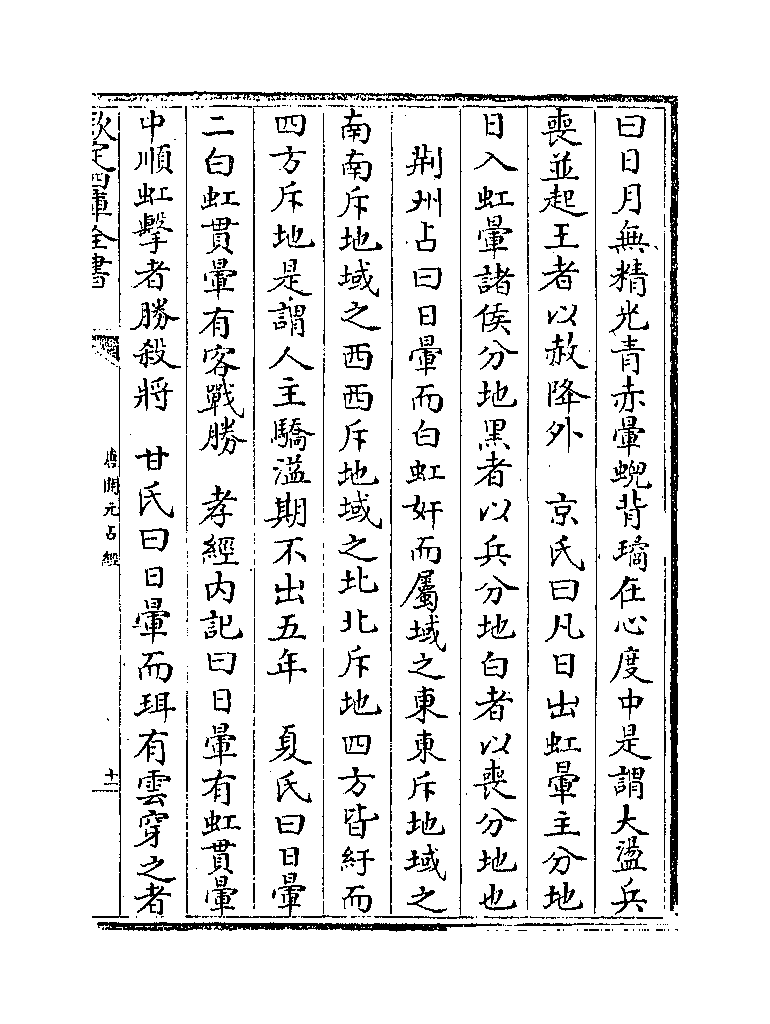 曰日月無精光青赤暈蜺背璚在心度中是謂大盪兵
喪並起王者以赦降外　京氏曰凡日出虹暈主分地
日入虹暈諸侯分地黑者以兵分地白者以喪分地也
荆州占曰日暈而白虹奸而屬域之東東斥地域之
南南斥地域之西西斥地域之北北斥地四方皆紆而
四方斥地是謂人主驕溢期不出五年　夏氏曰日暈
二白虹貫暈有客戰勝　孝經内記曰日暈有虹貫暈
中順虹擊者勝殺將　甘氏曰日暈而珥有雲穿之者
欽定四庫全書
唐開元占經
十二